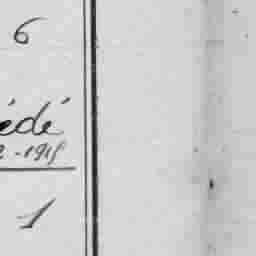 6
édé
2-1915
1